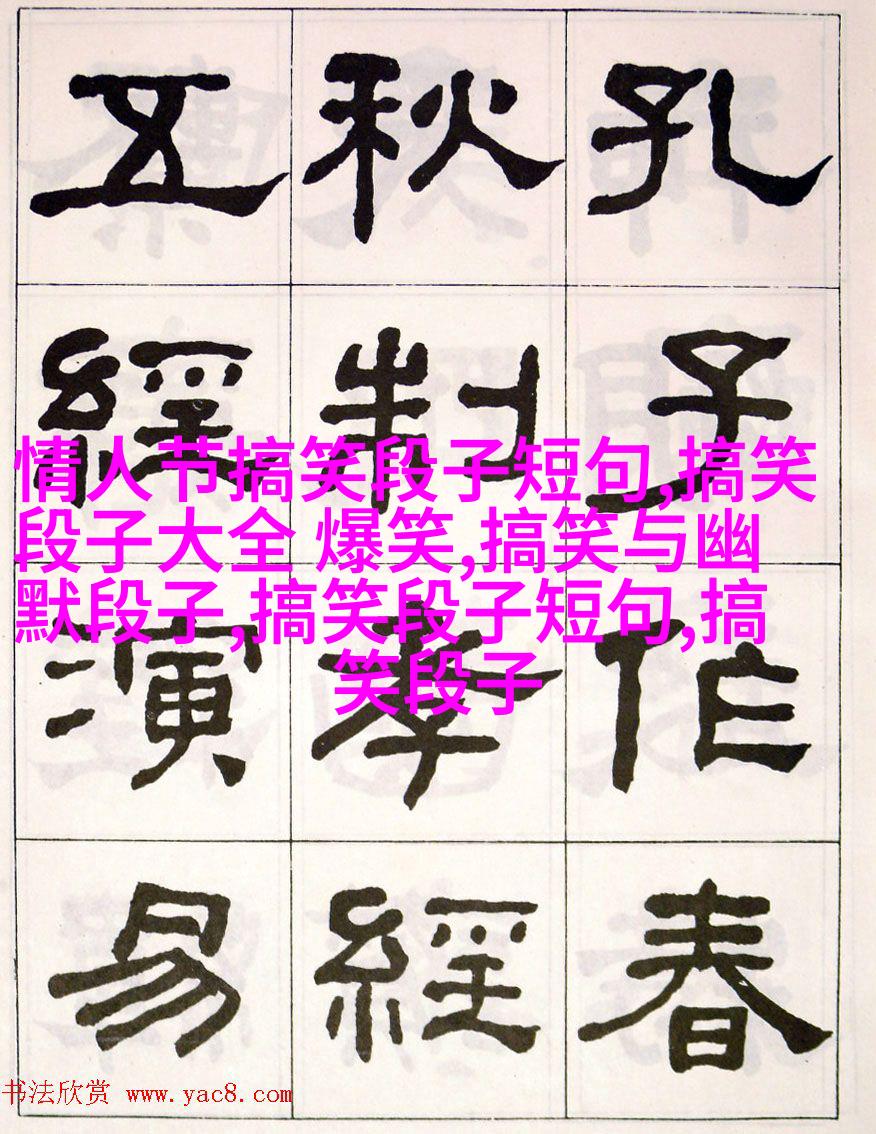 孔子作春
秋制孝經
五經演易
情人节搞笑段子短句,搞笑
段子大全 爆笑,搞笑与幽
默段子,搞笑段子短句,搞
笑段子
书法欣赏 www.yac8.com